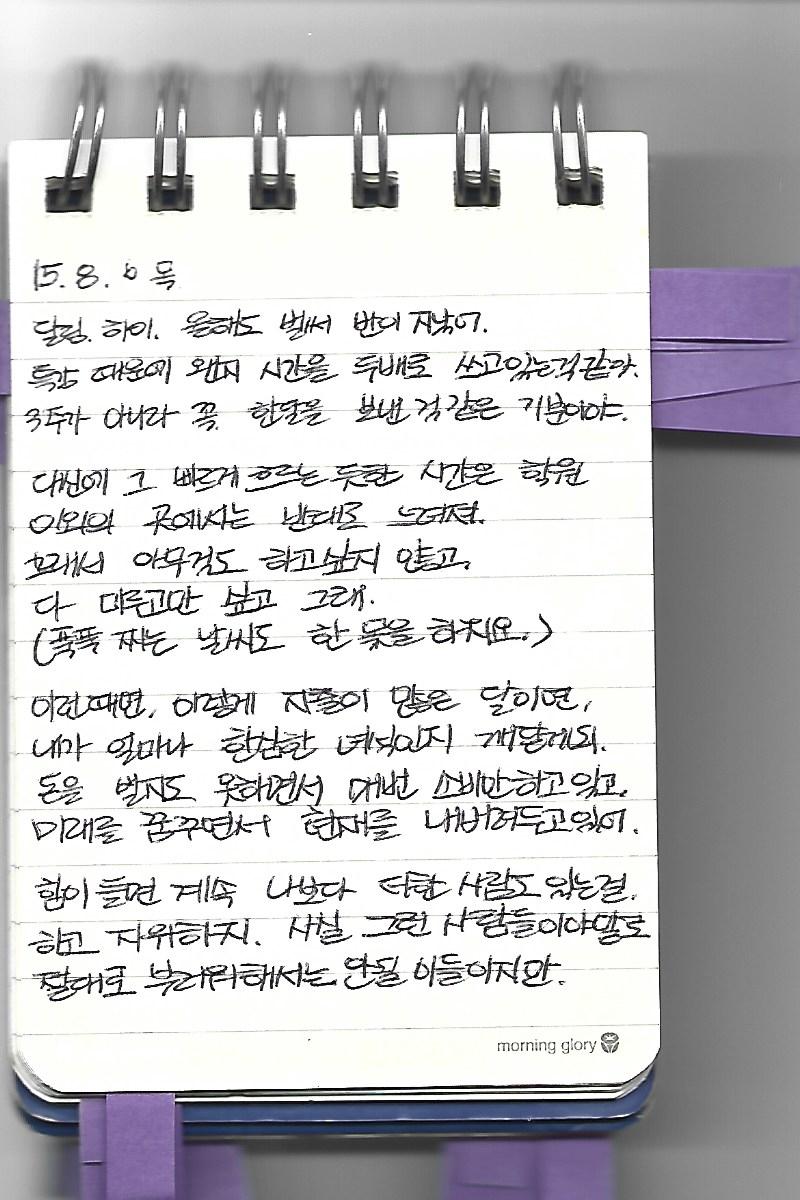 15. 8. 6 목
달링. 하이. 올해도 벌써 반이 지났어.
특강 때문에 왠지 시간을 두배로 쓰고있는것같아.
3주가 아니라 꼭 한달을 보낸 것 같은 기분이야.
대신에 그 빠르게 흐르는 듯한 시간은 학원
이외의 곳에서는 반대로 느려져.
그래서 아무것도 하고싶지 않고,
다 미루고만 싶고 그래.
(푹푹 찌는 날씨도 한 몫을 하지요.)
이런때면, 이렇게 지출이 많은 달이면,
내가 얼마나 한심한 녀석인지 깨닫게돼.
돈은 벌지도 못하면서 매번 소비만하고있고,
미래를 꿈꾸면서 현재를 내버려두고있어.
힘이 들면 계속 나보다 더한 사람도 있는걸.
하고 자위하지. 사실 그런 사람들이야말로
절대로 부러워해서는 안될 이들이지만.
morning glory